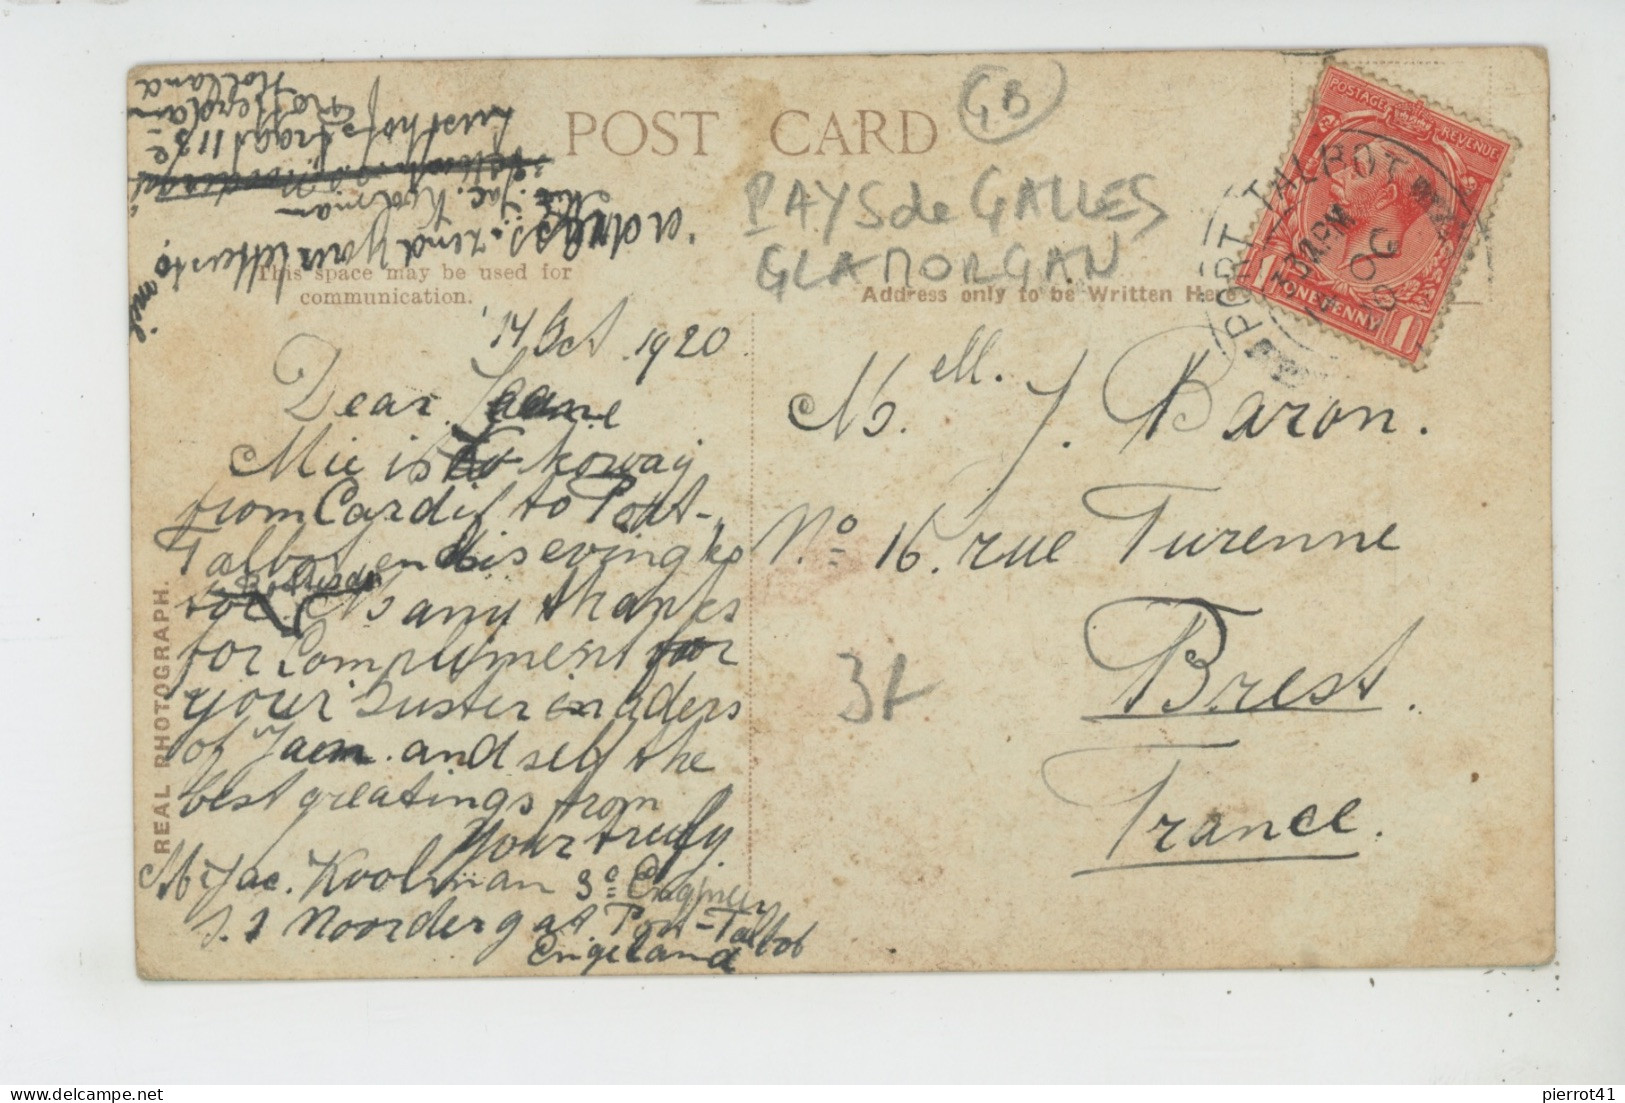 POST CARD
GB
PAYS de GALLES
GLAMORGAN
This space may be used for
communication.
Address only to be Written Here
REAL PHOTOGRAPH.
POSTAGE REVENUE
1 ONE PENNY 1
PORT TALBOT
adress: zend your letters to
Jac. Koolman
Lusthofstraat 113e
Rotterdam
Holland
14 Oct 1920
Dear Jeanne
Mie is to
from Cardif to Port-
Talbot
for Many thanks
for Compliment for
your suster
of Jaem. and self the
best greatings from
Your truly
Mr Jac. Koolman 3e Engineer
s.s Noordergat Port-Talbot
Engeland
Mell. J. Baron.
No 16. rue Turenne
Brest.
France.
3f
pierrot41